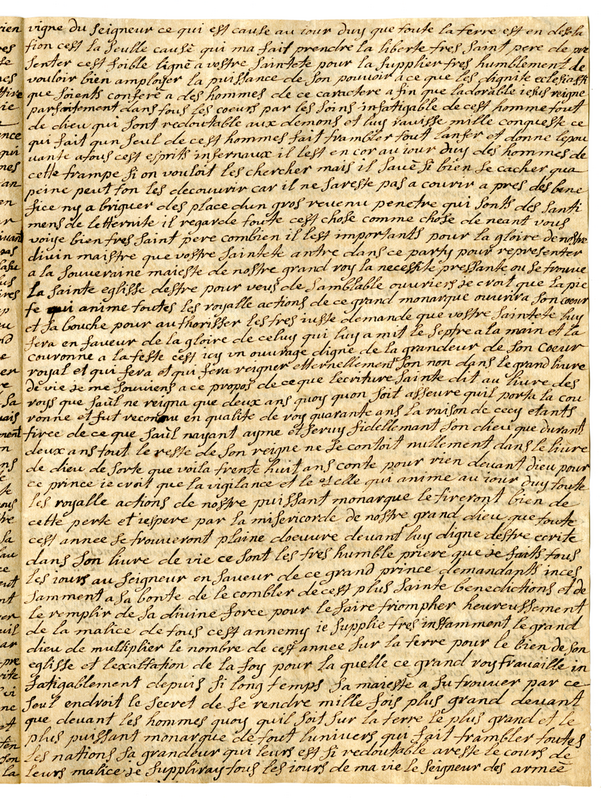 vigne du seigneur ce qui est cause au iour duy que toute la terre est en desola
sion cest la seulle cause qui ma fait prendre la liberte tres saint pere de pre
senter cest foible ligne a vostre saintete pour la supplier tres humblement de
vouloir bien amployer la puissance de son pouvoir a ce que les dignite eclesiasti
que soients conferè a des hommes de ce caractere a fin que ladorable iesus reigne
parfaitement dans tous les coeurs par les soins infatigable de cest homme tout
de dieu qui sont redoutable aux demons et luy ravisse mille conqueste ce
qui fait qun seul de cest hommes fait trambler tout lanfer et donne lepou
uante a tous cest esprits infernaux il lest en cor au iour duy des hommes de
cette trampe si on vouloit les chercher mais il savè si bien se cacher qua
peine peut ton les decouvrir car il ne sareste pas a courir a pres des bene
fice ny a briguer des place dun gros revenu pendre qui sonts des santi
mens de letternite il regarde toute cest chose comme chose de neant vous
voiye bien tres saint pere combien il lest importants pour la gloire de nostre
divin maistre que vostre saintete antre dans ce party pour representer
a la souveraine maieste de nostre grand roy la necesite pressante ou se trouve
la sainte eglisse destre pour veus de samblable ouvriers je croit que la pie
te qui anime toutes les royalle actions de ce grand monarque ouvrira son coeur
et sa bouche pour authorisser les tres iuste demande que vostre saintete luy
fera en faveur de la gloire de celuy qui luy a mit le septre a la main et la
couronne a la teste cest icy un ouvrage digne de la grandeur de son coeur
royal et qui fera et qui fera reigner etternellement son non dans le grand livre
de vie je me souviens a ce propos de ce que lecriture sainte dit au livre des
roys que saül ne reigna que deux ans quoy quon soit asseure quil porta la cou
ronne et fut reconnu en qualite de roy quarante ans la raison de cecy etants
tiree de ce que saül nayant ayme et servy fidellemant son dieu que durant
deux ans tout le reste de son reigne ne se contoit nullement dans le livre
de dieu de sorte que voila trente huit ans conte pour rien devant dieu pour
ce prince ie croit que la vigilance et le zelle qui anime au iour duy toute
les royalle actions de nostre puissant monarque le tireront bien de
cette perte et iespere par la misericorde de nostre grand dieu que toute
cest annee se trouveront plaine doeuvre devant luy digne destre ecrite
dans son livre de vie ce sont les tres humble priere que je faits tous
les iours au seigneur en faveur de ce grand prince demandants inces
samment a sa bonte de le combler de cest plus sainte benedictions et de
le remplir de sa divine force pour le faire triompher heureussement
de la malice de tous cest annemy ie supplie tres instamment le grand
dieu de multiplier le nombre de cest annee sur la terre pour le bien de son
eglisse et lexaltation de la foy pour la quelle ce grand roy travaille in
fatigablement depuis si long temps sa maieste a su trouver par ce
seul endroit le secret de se rendre mille fois plus grand devant dieu
que devant les hommes quoy quil soit sur la terre le plus grand et le
plus puissant monarque de tout lunivers qui fait trambler toutes
les nations sa grandeur qui leurs est si redoutable areste le cours de
leurs malice je suppliray tous les iours de ma vie le seigneur des armee